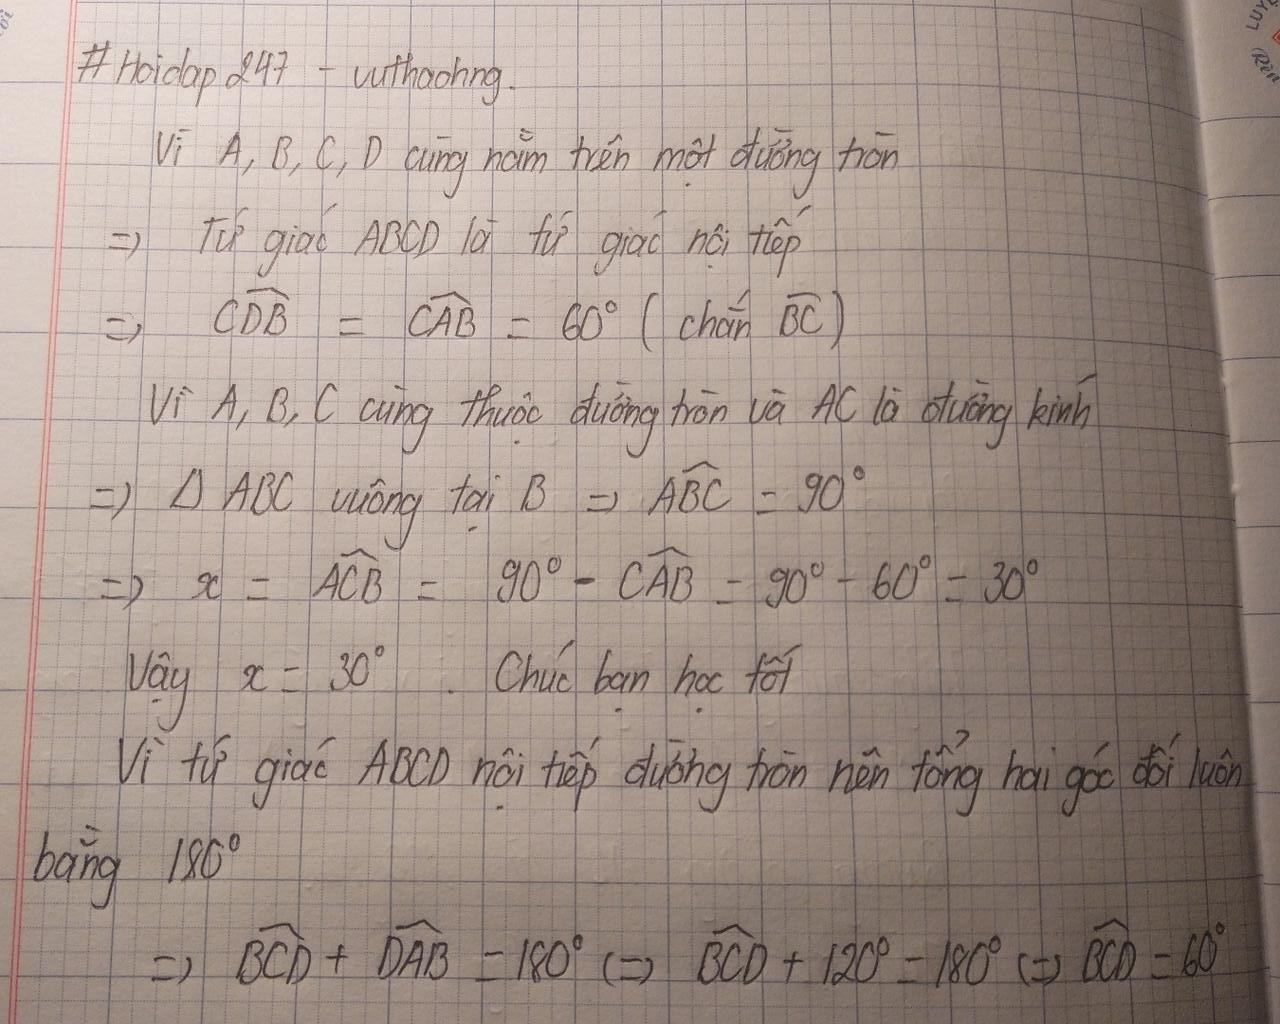 #Hoidap247 - vuthaohng.
Vì A, B, C, D cùng nằm trên một đường tròn
=> Tứ giác ABCD là tứ giác nội tiếp
=> CDB = CAB = 60° ( chắn BC )
Vì A, B, C cùng thuộc đường tròn và AC là đường kính
=> Δ ABC vuông tại B => ABC = 90°
=> x = ACB = 90° - CAB = 90° - 60° = 30°
Vậy x = 30° . Chúc bạn học tốt
Vì tứ giác ABCD nội tiếp đường tròn nên tổng hai góc đối luôn
bằng 180°
=> BCD + DAB = 180° (=> BCD + 120° = 180° (=> BCD = 60°
LUY